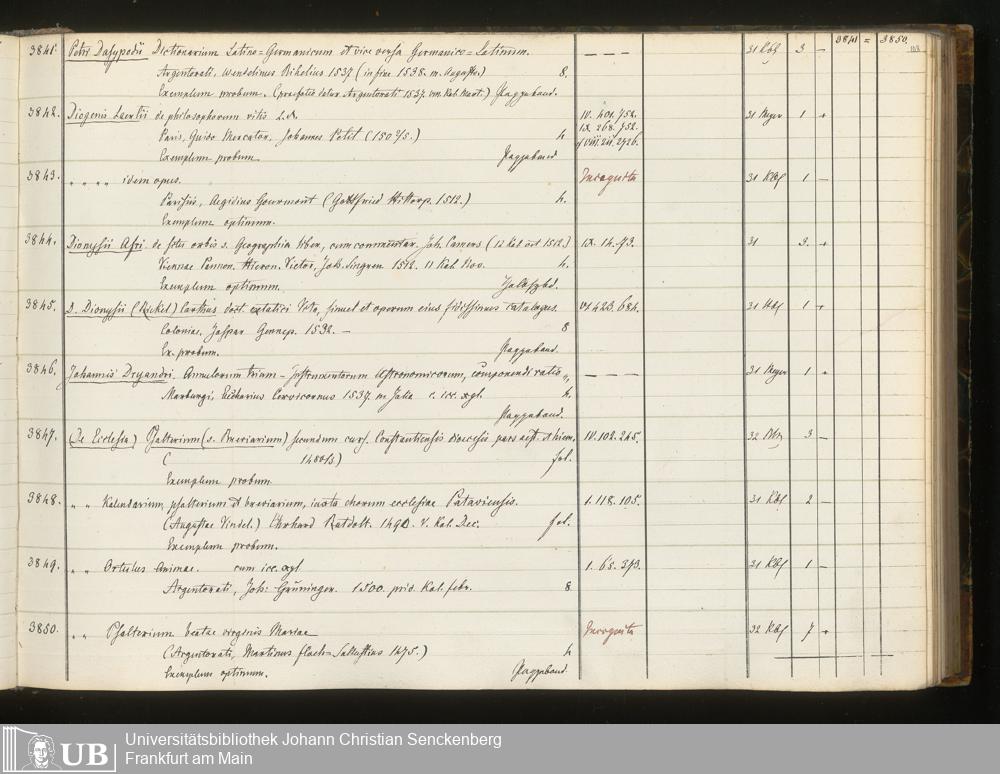 3841 = 3850.
3841. Petri Dasypodii Dictionarium Latino=Germanicum et vice versa Germanico=Latinum. — — — 31 Kbf 3 —
Argentorati, Wendelinus Rihelius 1537 (in fine 1538. m. Augusto.) 8.
Exemplum probum. (praefatio datur Argentorati 1537. Kal. Mart.) Pappband.
3842. Diogenis Laertii de philosophorum vitis L. X. IV. 401. 752. 31 Meyer 1 +
Paris, Guido Mercator, Johannes Petit (150 /5.) 4. IX. 268. 752.
Exemplum probum. Pappband cf VIII. 211. 2726.
3843. " " " " idem opus. Incognita 31 Kbf 1 —
Parisiis, Aegidius Gourmont (Gottfried Hittorp. 1512.) 4.
Exemplum optimum.
3844. Dionysii Afri de situ orbis s. Geographia liber, cum commentar. Joh. Camers (12 Kal. 1512.) IX. 14. 73. 31 3. +
Viennae Pannon. Hieron. Victor, Joh. Singren 1512. 11 Kal. Nov. 4.
Exemplum optimum.
3845. D. Dionysii (Rickel) Carthus. doct. extatici Vita, simul et operum eius fidissimus catalogus. VI 423. 684. 31 1 +
Coloniae, Jaspar Gennep. 1532. — 8
Ex. probum. Pappband.
3846. Johannis Dryandri. Annulorum trium — Instrumentorum Astronomicorum, componendi ratio „ — — — 31 Meyer 1 +
Marburgi, Eucharius Cervicornus 1537. m. Julio c. icc. xyl. 4.
Pappband.
3847. (De Ecclesia) Psalterium (s. Breviarium) secundum curs. Constantiensis dioecesis pars aest. et hiem. IV. 102. 245. 32 3 —
( 1480/5) fol.
Exemplum probum
3848. " " Kalendarium, psalterium et breviarium, iuxta chorum ecclesiae Pataviensis. 1. 118. 105. 31 Kbf 2 —
(Augustae Vindel.) Erhard Ratdolt. 1490. V. Kal. Dec. fol.
Exemplum probum.
3849. " " Ortulus Animae. cum icc. xyl 1. 65. 373. 31 Kbf 1 —
Argentorati, Joh: Grüninger. 1500. prid. Kal. febr. 8
3850. " " Psalterium beatae virginis Mariae Incognita 32 Kbf 7 +
(Argentorati, Martinus flach — Sallustius 1475.) 4
Exemplum optimum. Pappband.
UB
Universitätsbibliothek Johann Christian Senckenberg
Frankfurt am Main